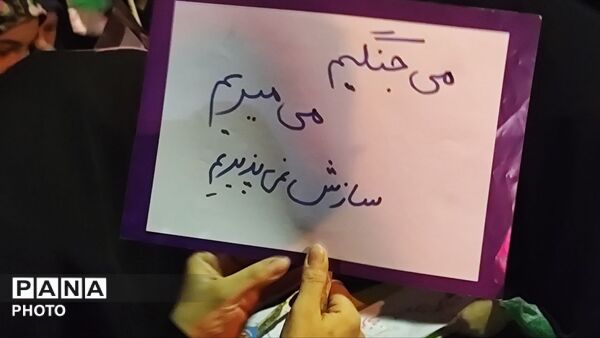 می جنگیم
می میریم
سازش نمی پذیریم
PANA
PHOTO